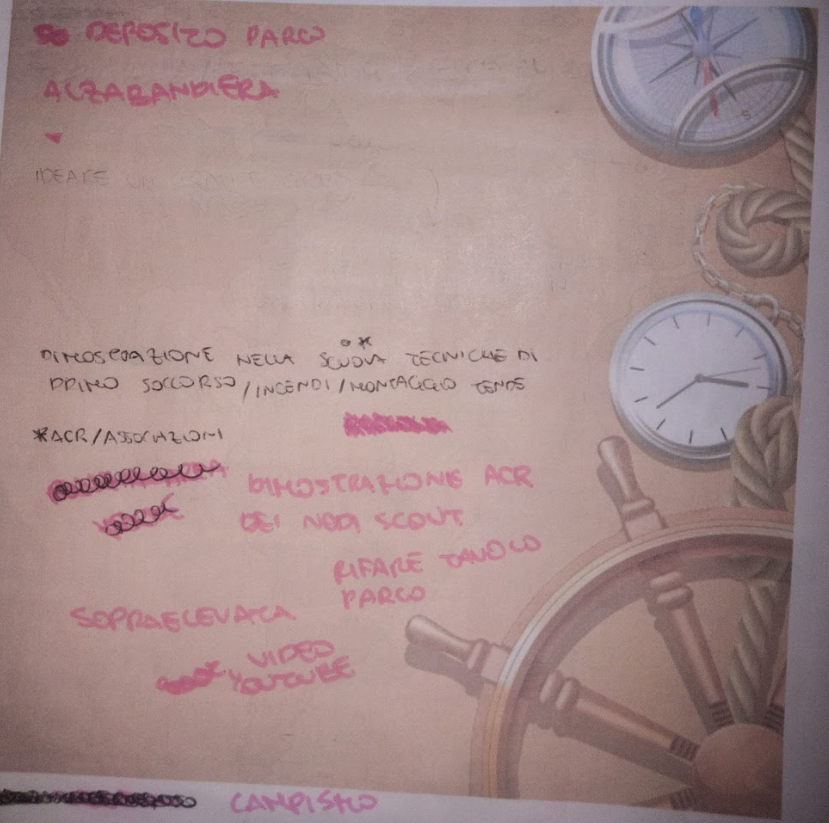 DEPOSITO PARCO
ALZABANDIERA
IDEARE UN
DIMOSTRAZIONE NELLA SCUOLA TECNICHE DI
PRIMO SOCCORSO/INCENDI/MONTAGGIO TENDE
*ACR/ASSOCIAZIONI
DIMOSTRAZIONE ACR
DEI NODI SCOUT
RIFARE TAVOLO
PARCO
SOPRAELEVATA
VIDEO
YOUTUBE
CAMPISTCO